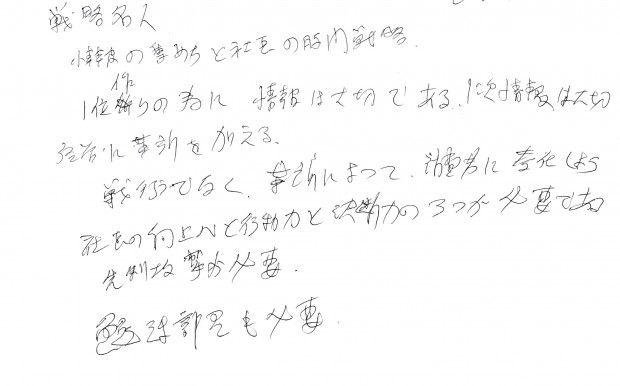 戦略名人
情報の集めかたと社長の時間戦略.
1位作りの為に 情報は大切である.1次情報は大切
経営に革新を加える.
戦行でなく、革新によって、消費者に
社長の向上心と行動力と決断力の3つが必要である
先制攻撃が必要.
も必要.